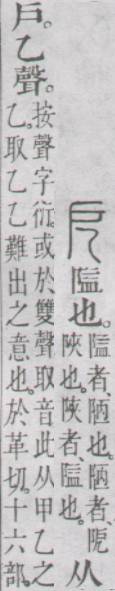 戹隘也。隘者、陋也。陋者、阸陜也。陜者、隘也。从
戶。乙聲。按聲字衍。或於雙聲取音此从甲乙之乙。取乙乙難出之意也。於革切。十六部。